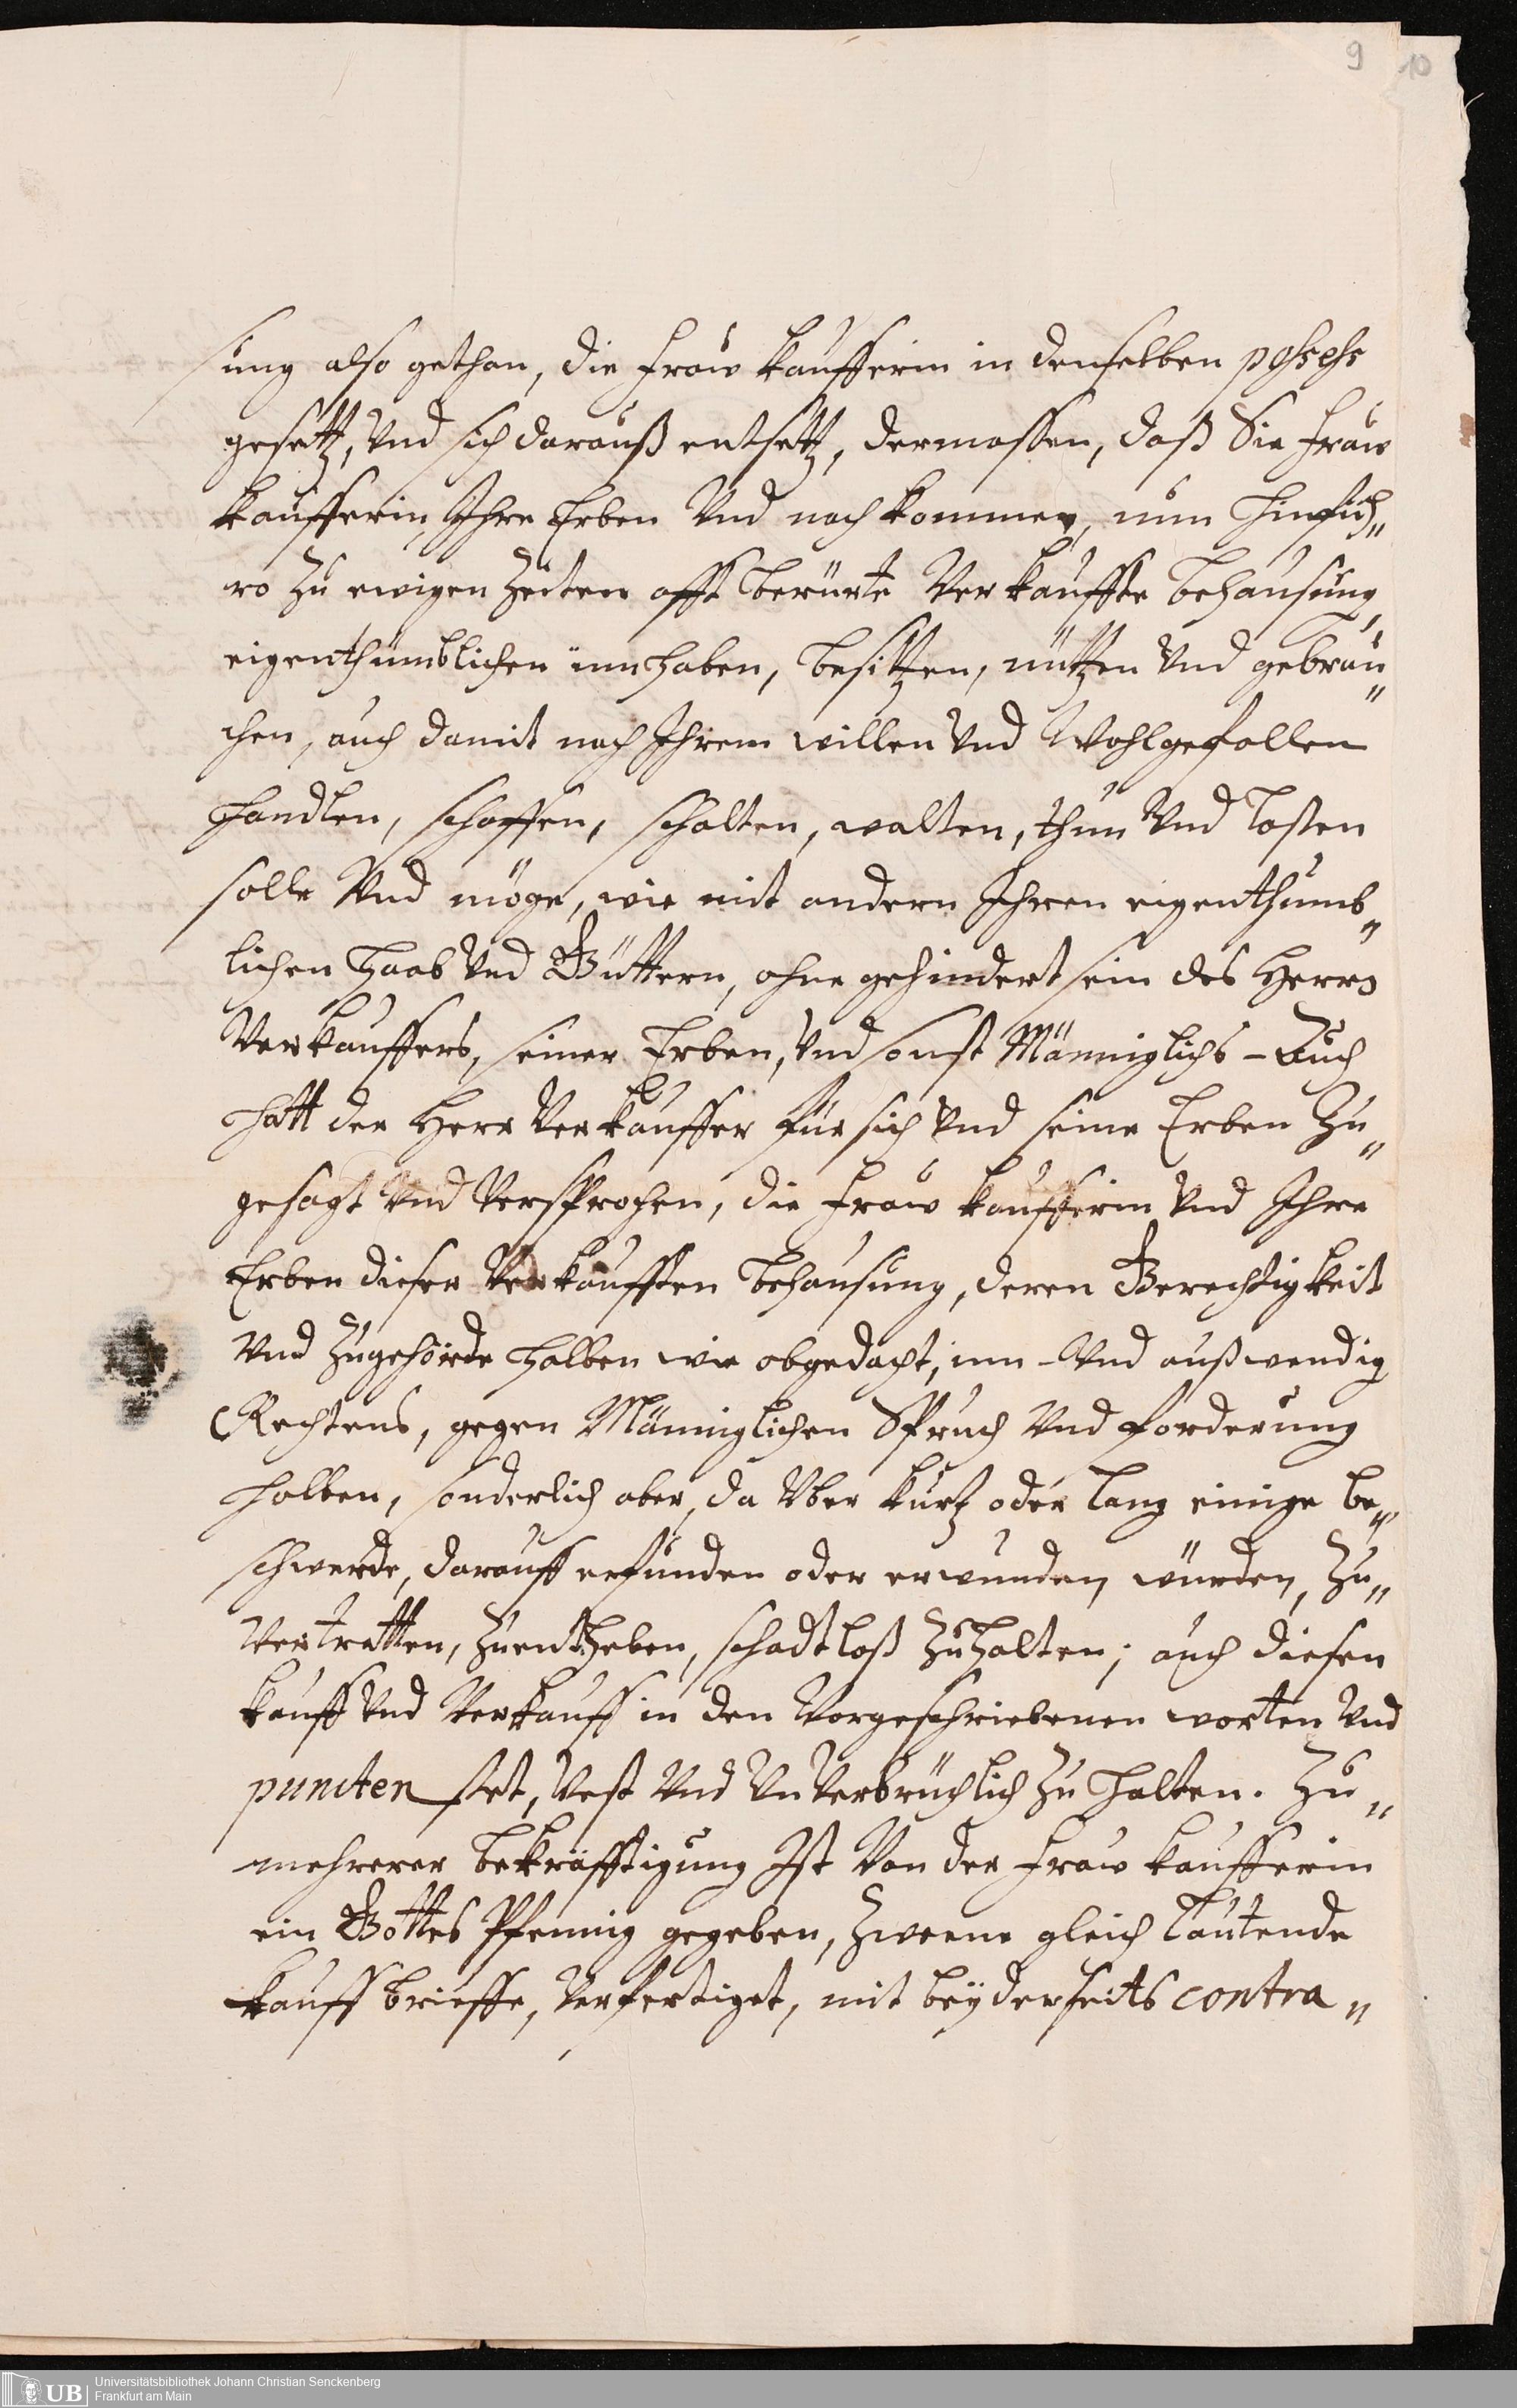 9
10
sung also gethan, die Fraw kaufferin in denselben possess
gesetzt, Vnd sich darauß entsetzt, dermassen, daß Sie Fraw
kaufferin, Ihre Erben Vnd nachkommen, nun hinfüh„
ro zu ewigen Zeiten offt berürte Verkauffte behausung,
eigenthümblichen innhaben, besitzen, nützen Vnd gebrau„
chen, auch damit nach Ihrem willen Vnd Wohlgefallen
handlen, schaffen, schalten, walten, thun Vnd lassen
solle Vnd möge, wie mit andern Ihren eigenthumb„
lichen Haab Vnd Güttern, ohne gehindert sein des Herrn
Verkauffers, seiner Erben, Vnd sonst Männiglichs – Auch
hatt der Herr Verkauffer für sich Vnd seine Erben Zu„
gesagt Vnd Versprochen, die Fraw kaufferin Vnd Ihre
Erben dieser Verkaufften behausung, deren Gerechtigkeit
Vnd Zugehörde halben wie obgedacht, inn- Vnd außwendig
Rechtens, gegen Männiglichen Spruch Vnd forderung
halben, sonderlich aber, da Vber kurtz oder lang einige be„
schwerde, darauff erfunden oder erwunden würden, Zu„
Vertretten, Zuentheben, schadtloß Zuhalten; auch diesen
kauff Vnd Verkauff in den Vorgeschriebenen worten Vnd
puncten stet, Vest Vnd VnVerbrüchlich Zu halten. Zu„
mehrerer bekräfftigung Ist Von der Fraw kaufferin
ein Gottes Pfennig gegeben, Zweene gleich lautende
kauffbrieffe, Verfertiget, mit beÿderseits contra„
UB
Universitätsbibliothek Johann Christian Senckenberg
Frankfurt am Main